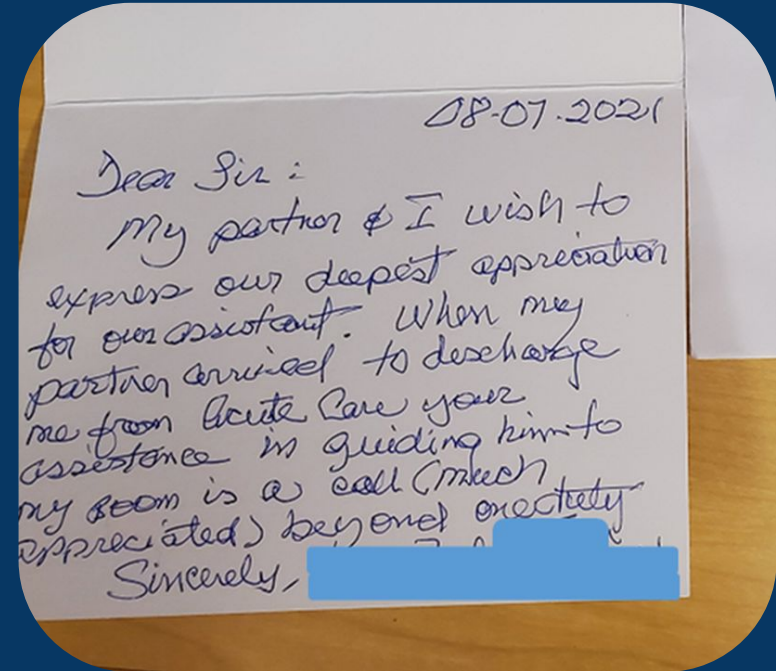 08-07-2021
Dear Sir:
My partner & I wish to
express our deepest appreciation
for our assistant. When my
partner arrived to descharge
me from Acute Care your
assistance in guiding him to
my room is a call (much
appreciated) beyond
Sincerely,